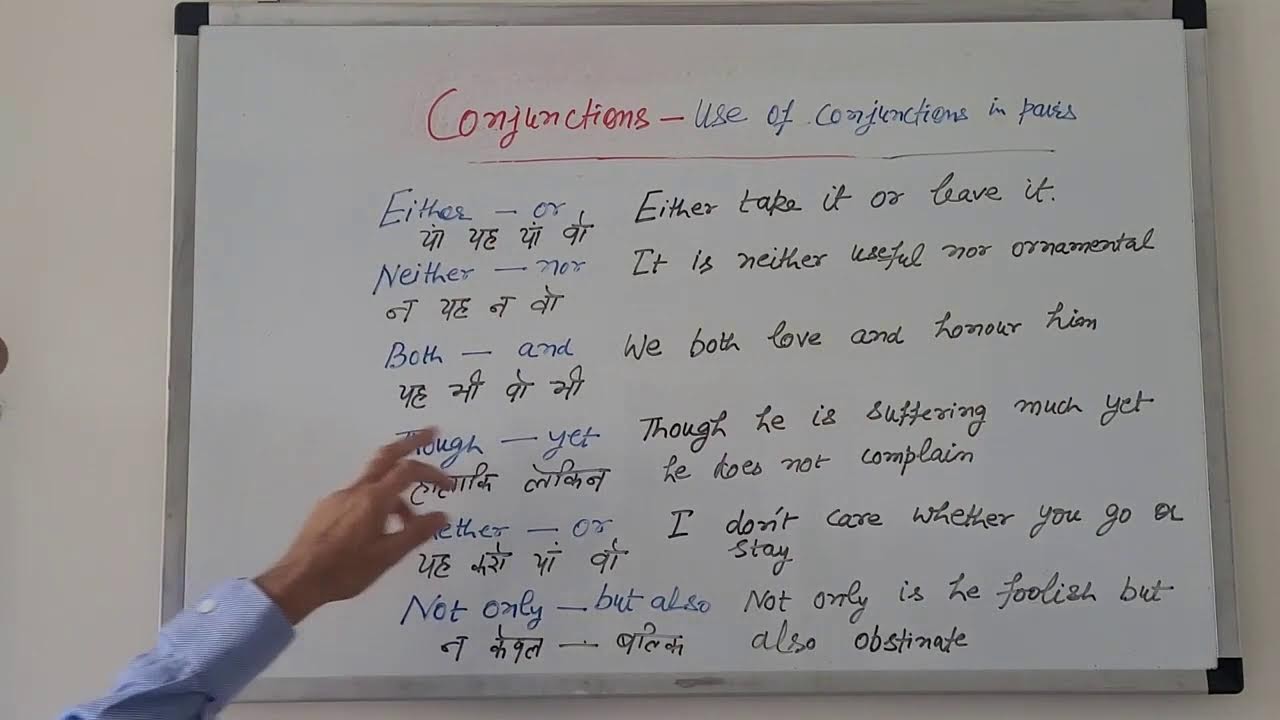 Conjunctions - Use of conjunctions in pairs
Either - or Either take it or leave it.
यां यह यां वो
Neither - nor It is neither useful nor ornamental
न यह न वो
Both - and We both love and honour him
यह भी वो भी
Though - yet Though he is suffering much yet
लेकिन he does not complain
or I don't care whether you go or
यह करो यां वो stay
Not only - but also Not only is he foolish but
न केवल - बल्कि also obstinate